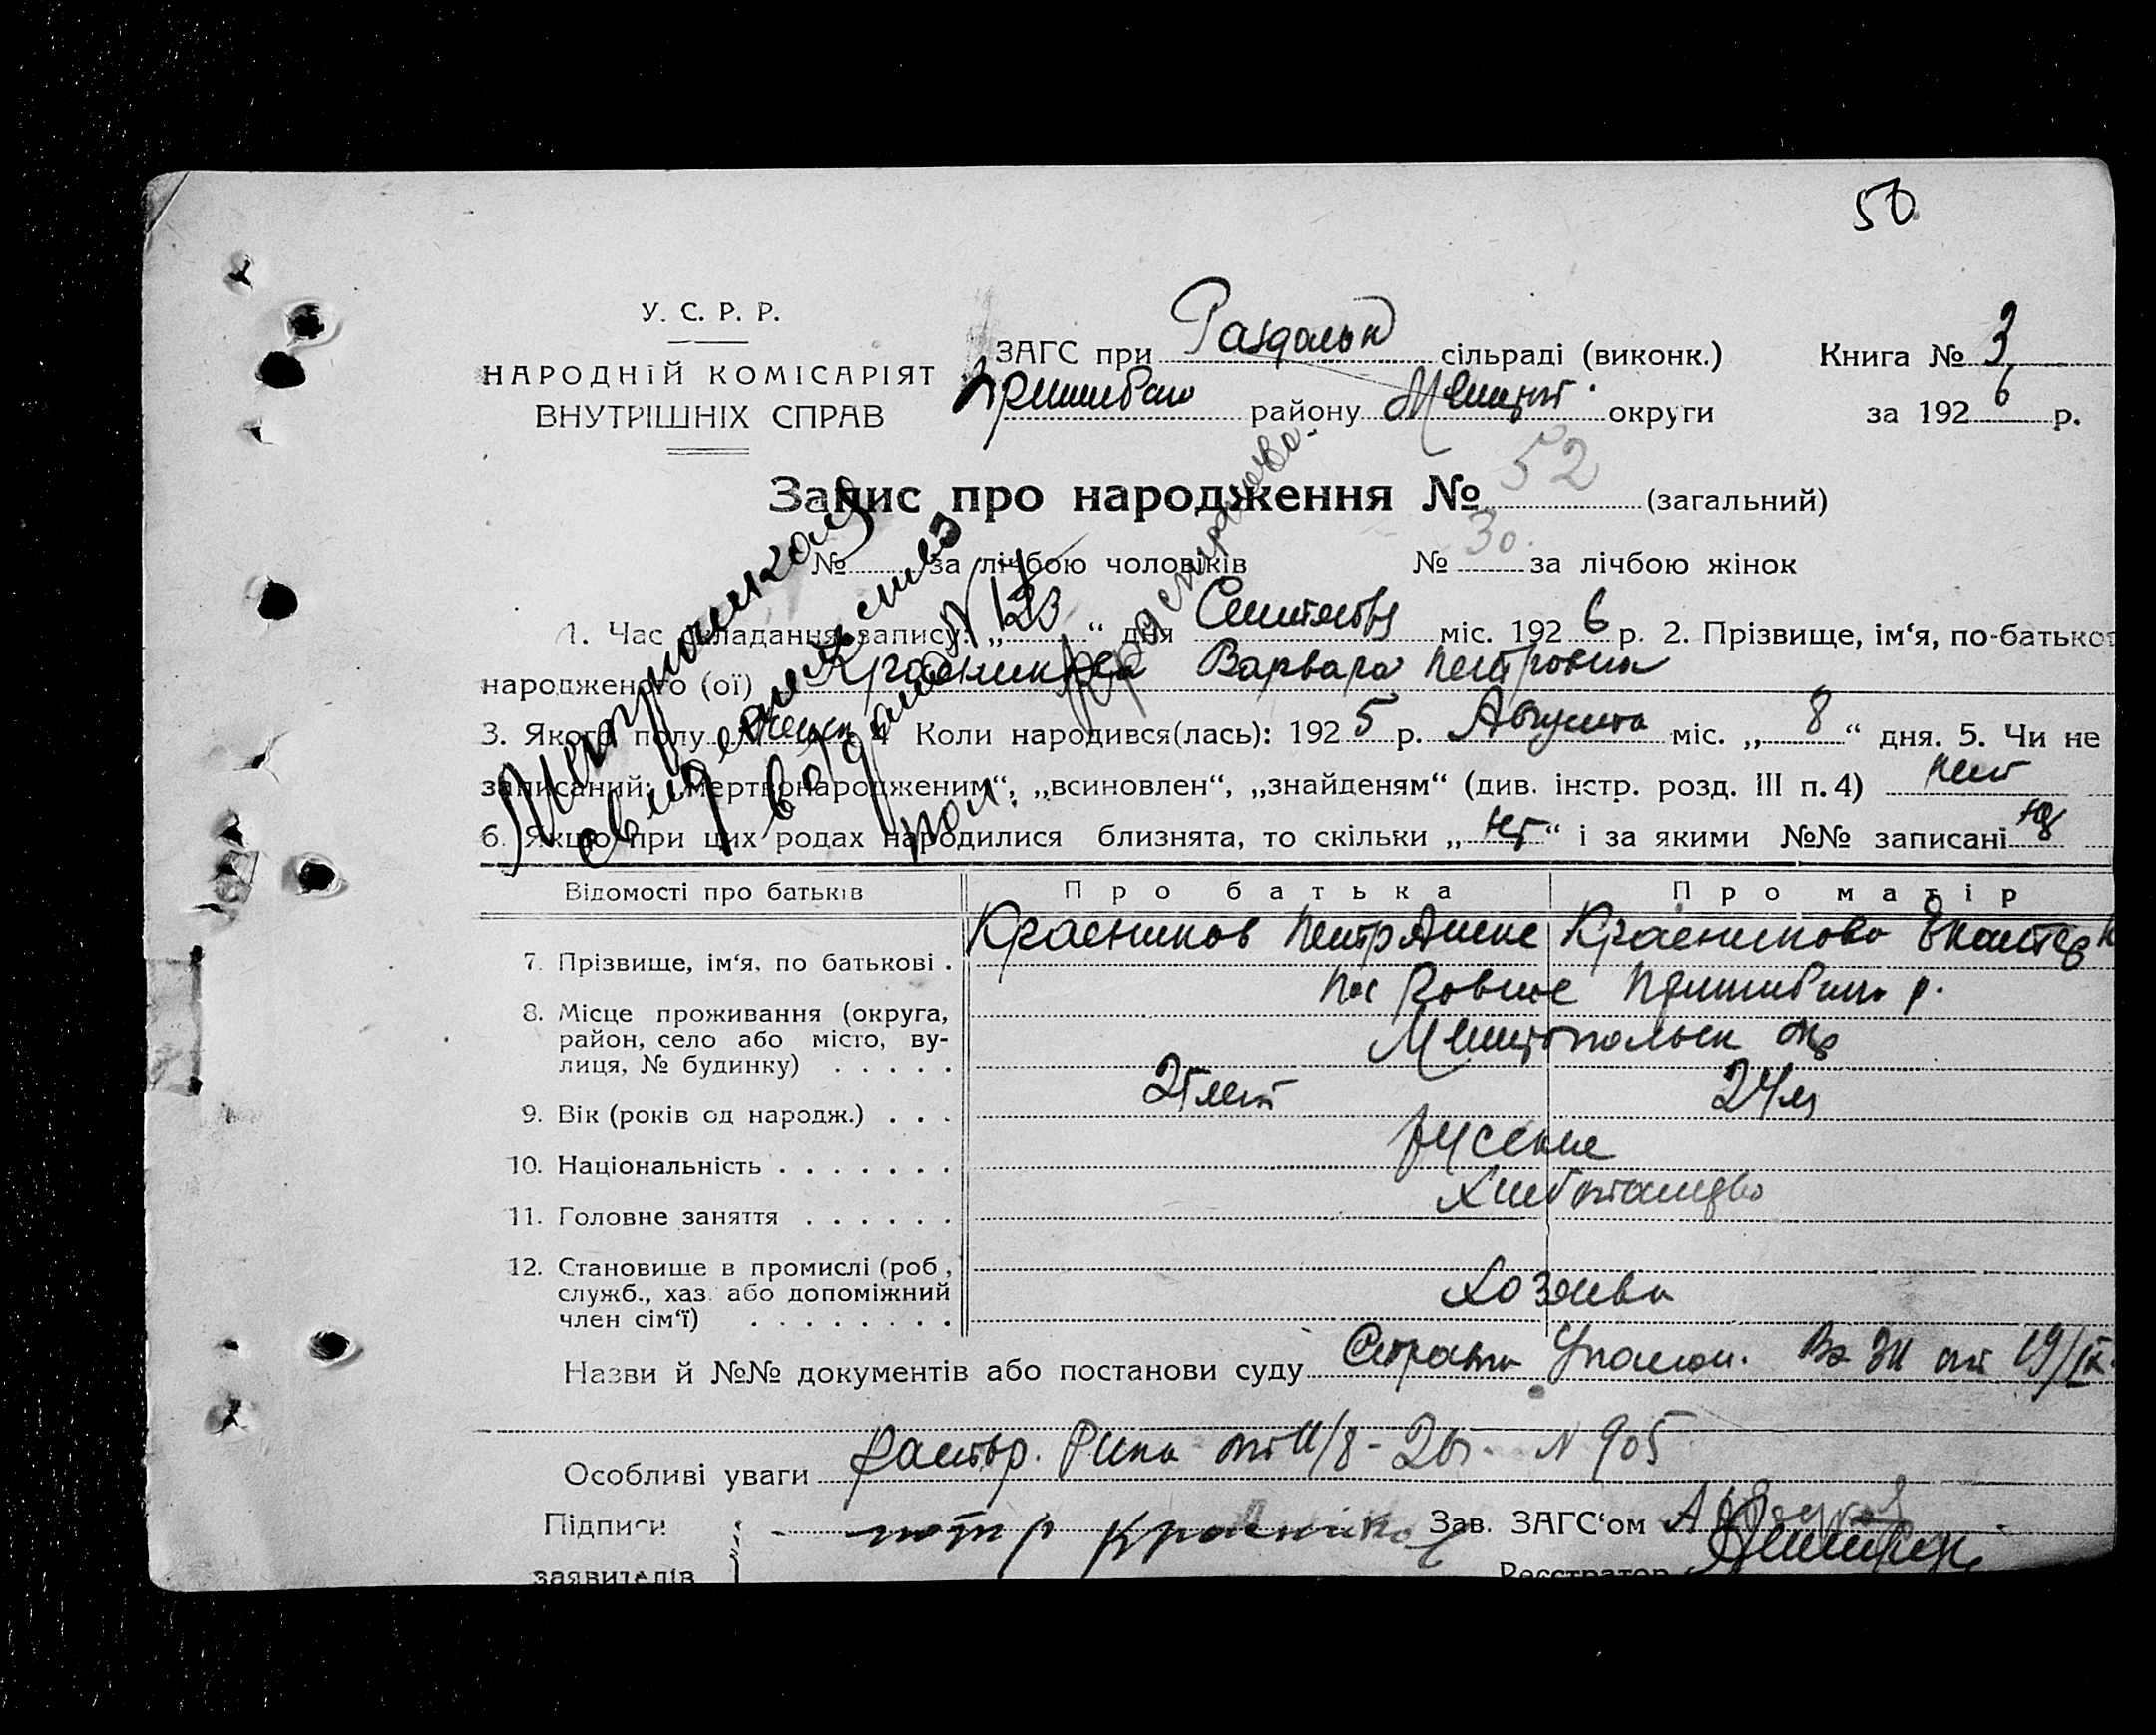 50
У. С. Р. Р.
НАРОДНІЙ КОМІСАРІЯТ
ВНУТРІШНІХ СПРАВ
ЗАГС при Раздольн сільраді (виконк.) Книга № 3
району округи за 1926 р.
Запис про народження № 52 (загальний)
№ за лічбою чоловіків № 30. за лічбою жінок
1. Час складання запису: „ 23 “ дня міс. 1926 р. 2. Прізвище, ім‘я, по-батьков
народженого (ої) Красникова Варвара Петровна
3. Якого полу женск 4 Коли народився(лась): 1925 р. Августа міс. „ 8 “ дня. 5. Чи не
записаний: „мертвонародженим“, „всиновлен“, „знайденям“ (див. інстр. розд. III п. 4) нет
6. Якщо при цих родах народилися близнята, то скільки „ нет “ і за якими №№ записані
Метрическая
свидетельство
выдано №
Відомості про батьків Про батька Про матір
7. Прізвище, ім‘я, по батькові . Красников Петр Алекс Красникова Екатер
8. Місце проживання (округа, район, село або місто, ву-
лиця, № будинку) . . . . .
пос Ровное Пришибск р.
Мелитопольск окр
9. Вік (років од народж.) . . . 25 лет 24 л
10. Національність . . . . . . . русские
11. Головне заняття . . . . . . Хлебопашество
12. Становище в промислі (роб,
служб., хаз. або допоміжний
член сім‘ї) . . . . . . . .
Хозяева
Назви й №№ документів або постанови суду от 19/IX
Особливі уваги распор. Рика от 11/8-26 г. N 905
Підписи Зав. ЗАГС‘ом
заявителів Реєстратор